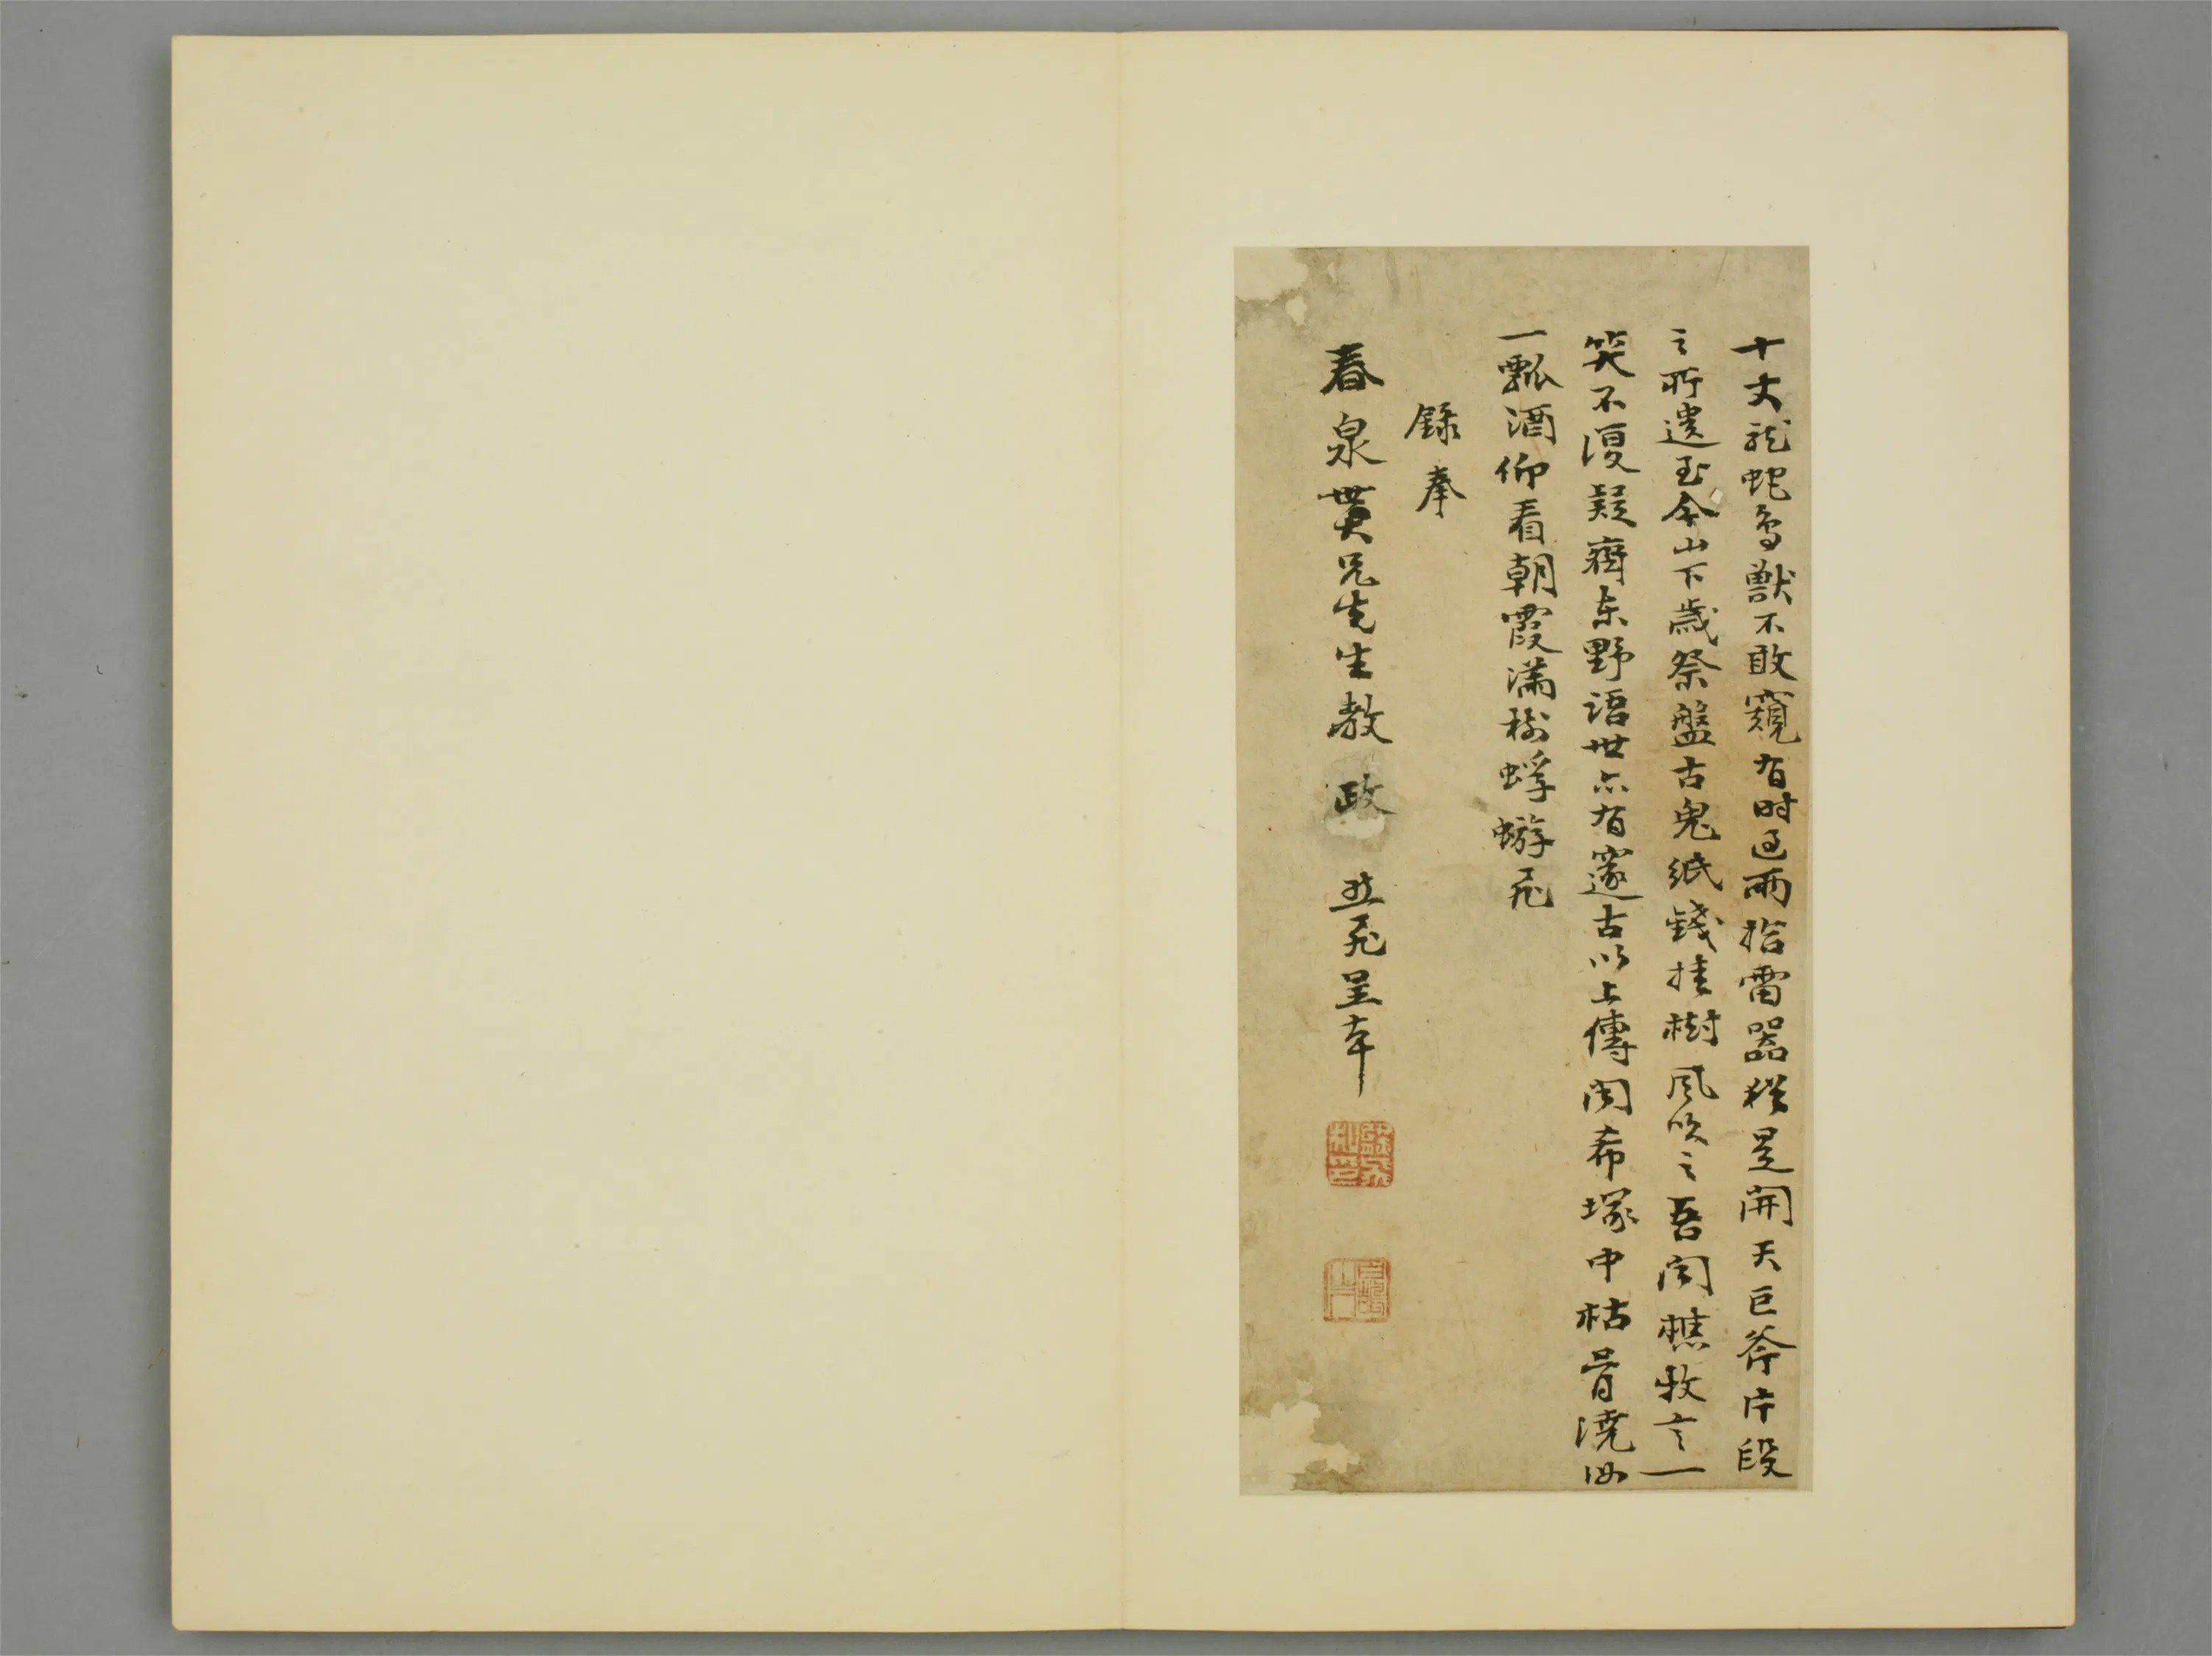 十丈龍蛇鳥獸不敢窺有時過雨拾雷器猶是開天巨斧片段
之所遺至今山下歲祭盤古鬼紙錢挂樹風吹之吾聞樵牧言一
笑不復疑齊東野語世亦有邃古以上傳聞希塚中枯骨澆汝
一瓢酒仰看朝霞滿樹蜉蝣飛
錄奉
春泉世大兄先生教政 益飛呈本